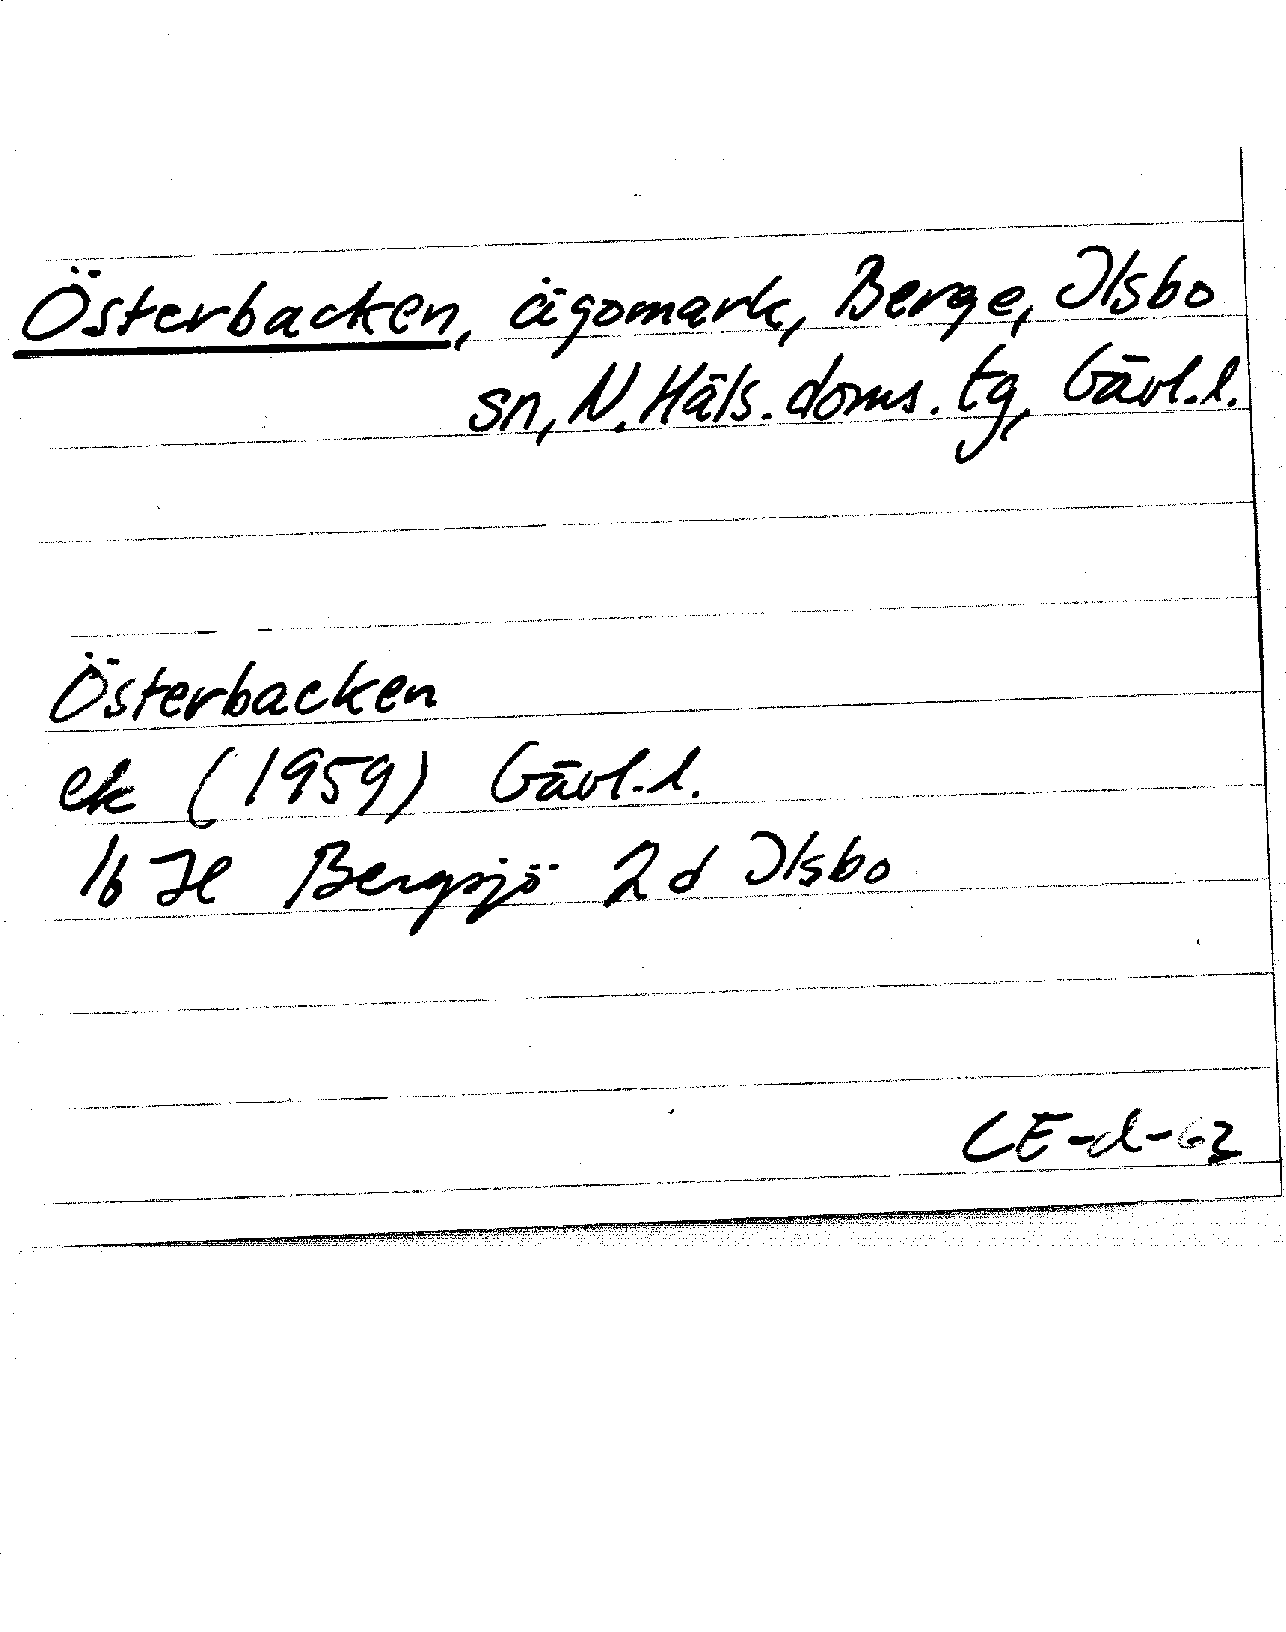 Österbacken, ägomark, Berge, Ilsbo
sn, N. Häls. doms. tg, Gävl. l.
Österbacken
ek (1959) Gävl. l.
16 H Bergsjö 2 d Ilsbo
CE-d-62